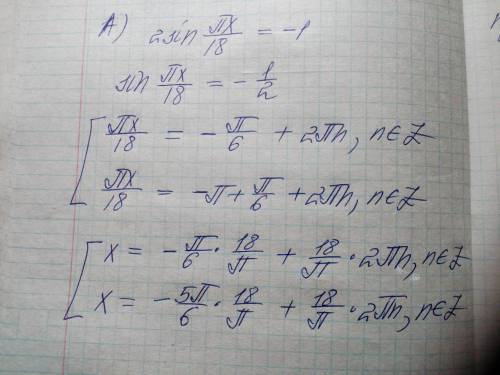 А) 2sin πx/18 = -1
sin πx/18 = -1/2
[ πx/18 = -π/6 + 2πn, n∈Z
πx/18 = -π + π/6 + 2πn, n∈Z
[ x = -π/6 · 18/π + 18/π · 2πn, n∈Z
x = -5π/6 · 18/π + 18/π · 2πn, n∈Z